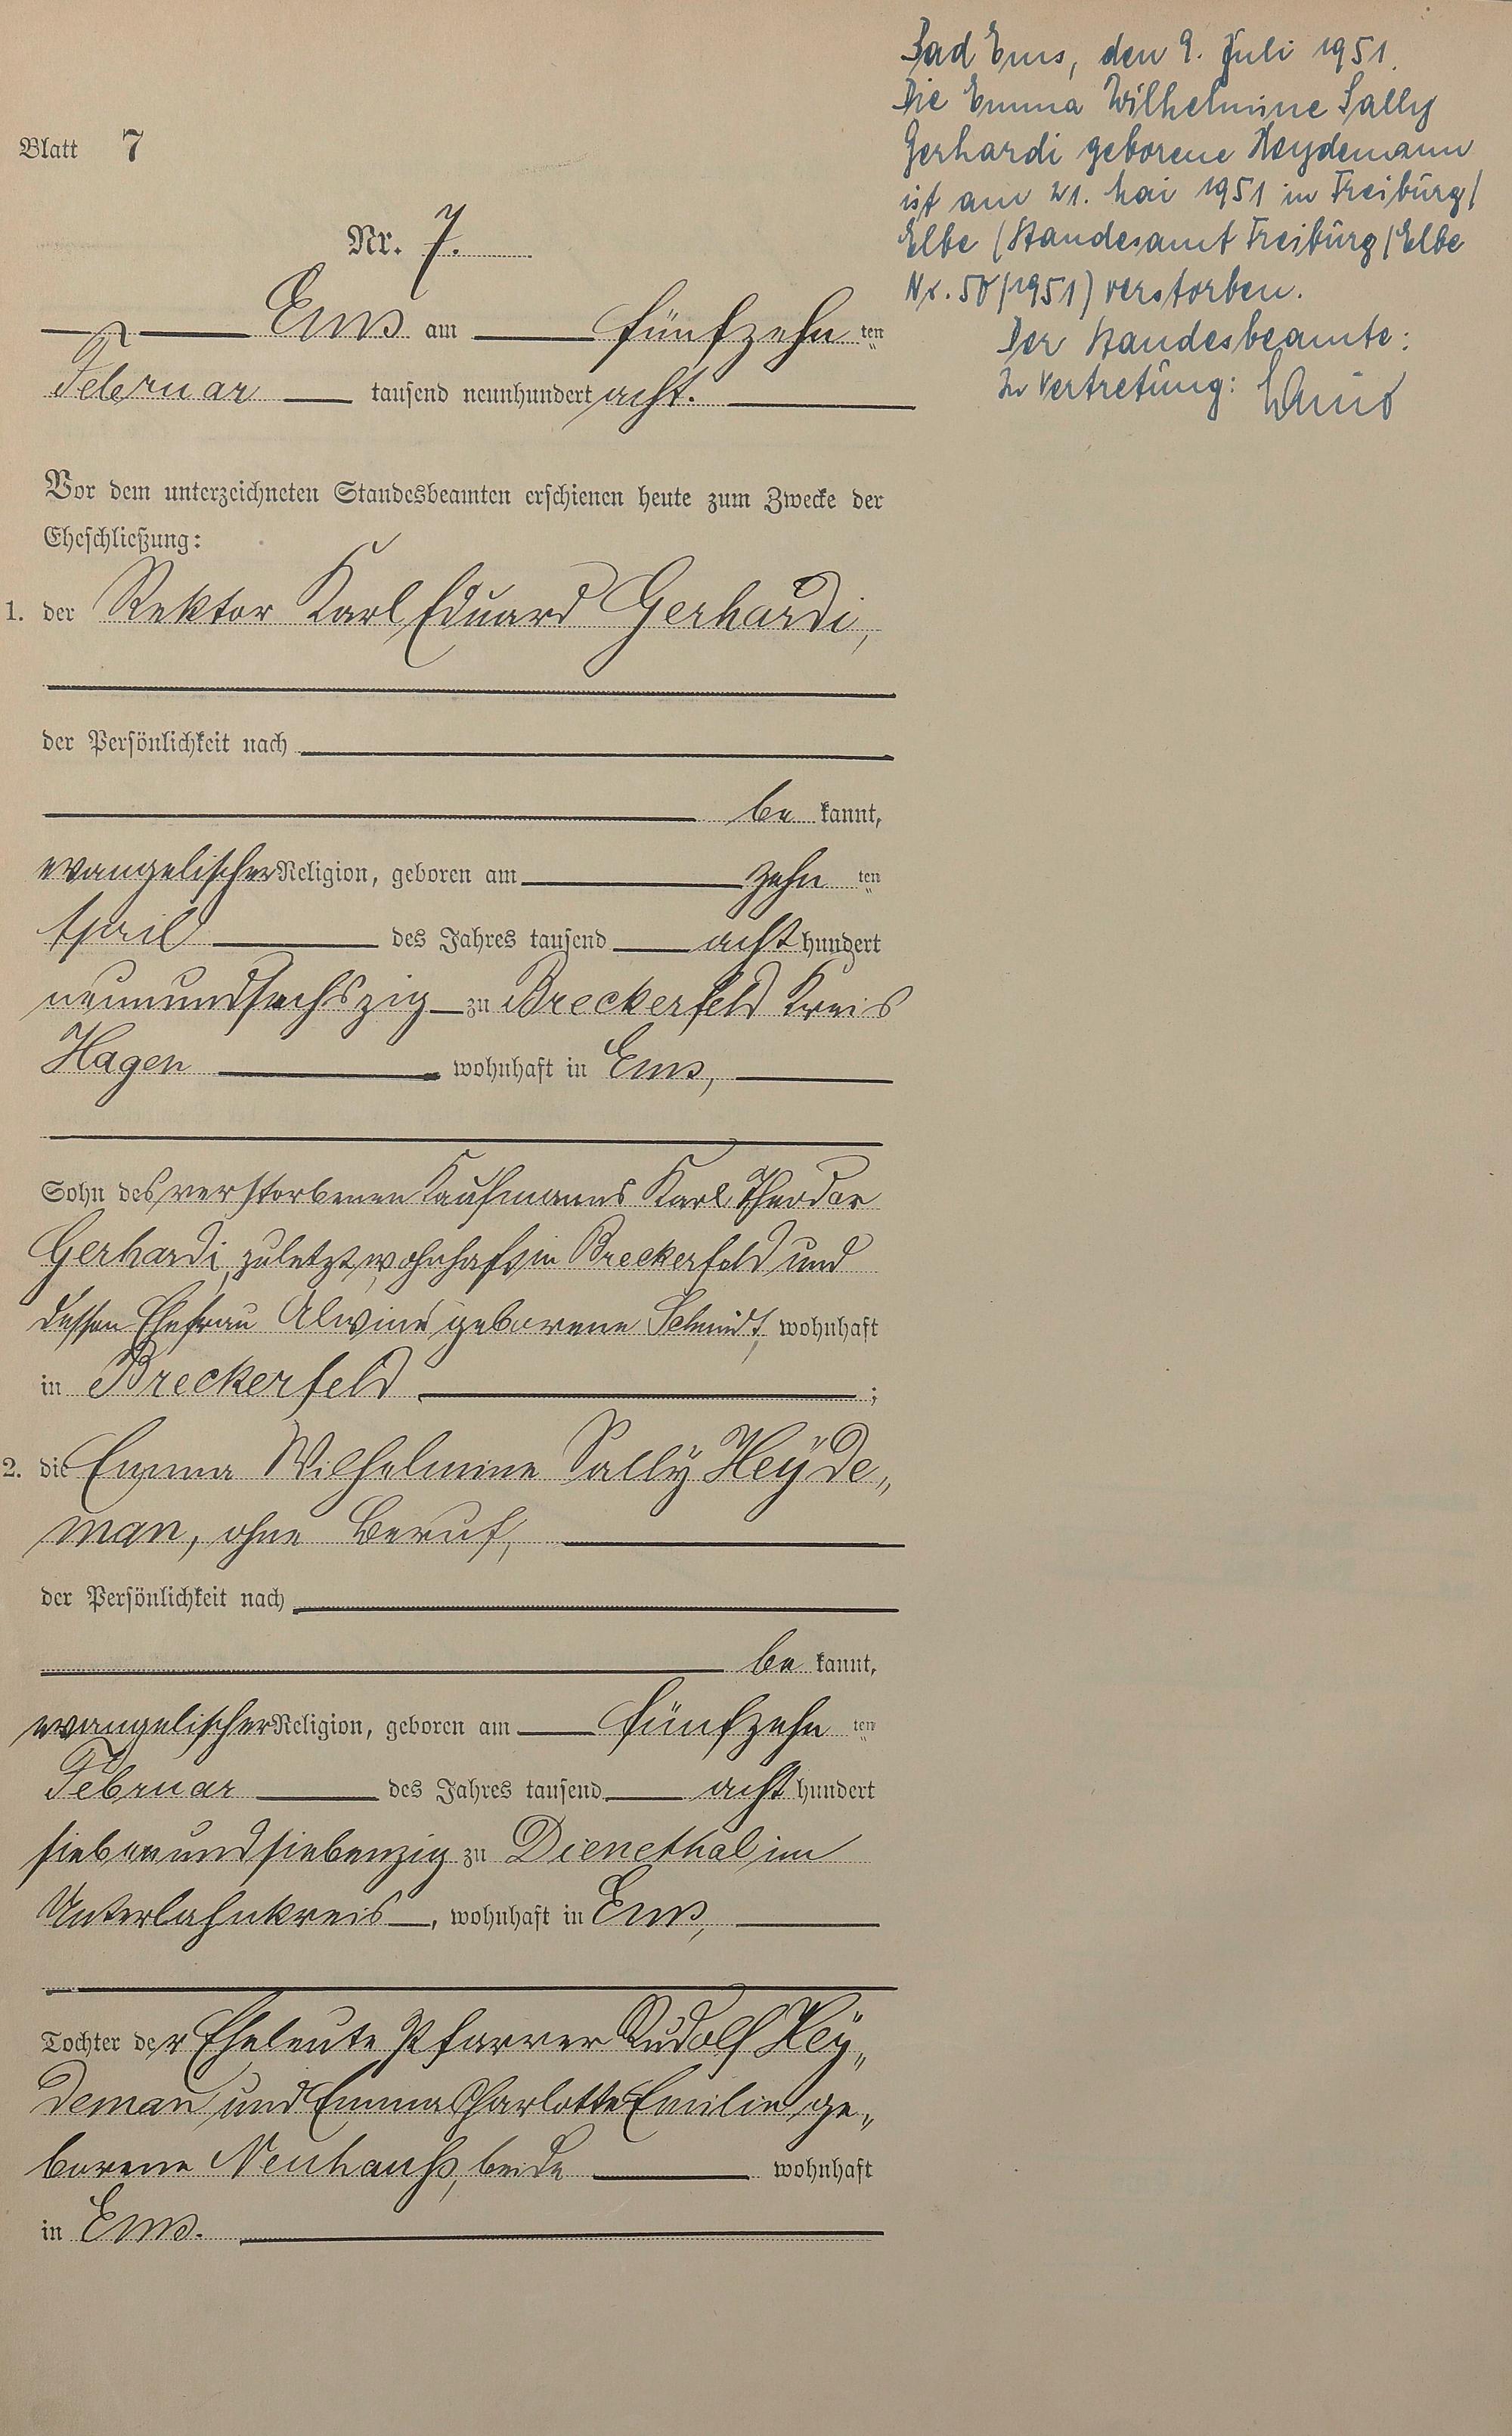 Blatt 7
Nr. 7.
Ems am fünfzehn ten
Februar tausend neunhundert acht.
Vor dem unterzeichneten Standesbeamten erschienen heute zum Zwecke der
Eheschließung:
1. der Rektor Karl Eduard Gerhardi,
der Persönlichkeit nach
be kannt,
evangelischer Religion, geboren am zehn ten
April des Jahres tausend acht hundert
neunundsechszig zu Breckerfeld Kreis
Hagen wohnhaft in Ems,
Sohn des verstorbenen Kaufmanns Karl Theodor
Gerhardi, zuletzt wohnhaft in Breckerfeld und
dessen Ehefrau Alwine geborene Schmidt, wohnhaft
in Breckerfeld ;
2. die Emma Wilhelmine Sally Heyde„
man, ohne Beruf,
der Persönlichkeit nach
be kannt,
evangelischer Religion, geboren am fünfzehn ten
Februar des Jahres tausend acht hundert
siebenundsiebenzig zu Dienethal im
Unterlahnkreis, wohnhaft in Ems,
Tochter der Eheleute Pfarrer Rudolf Hey„
deman und Emma Charlotte Emilie ge„
borene Neuhauß, beide wohnhaft
in Ems.
Bad Ems, den 9. Juli 1951.
Die Emma Wilhelmine Sally
Gerhardi geborene Heydemann
ist am 21. Mai 1951 in Freiburg/
Elbe (Standesamt Freiburg/Elbe
Nr. 50/1951) verstorben.
Der Standesbeamte:
In Vertretung: